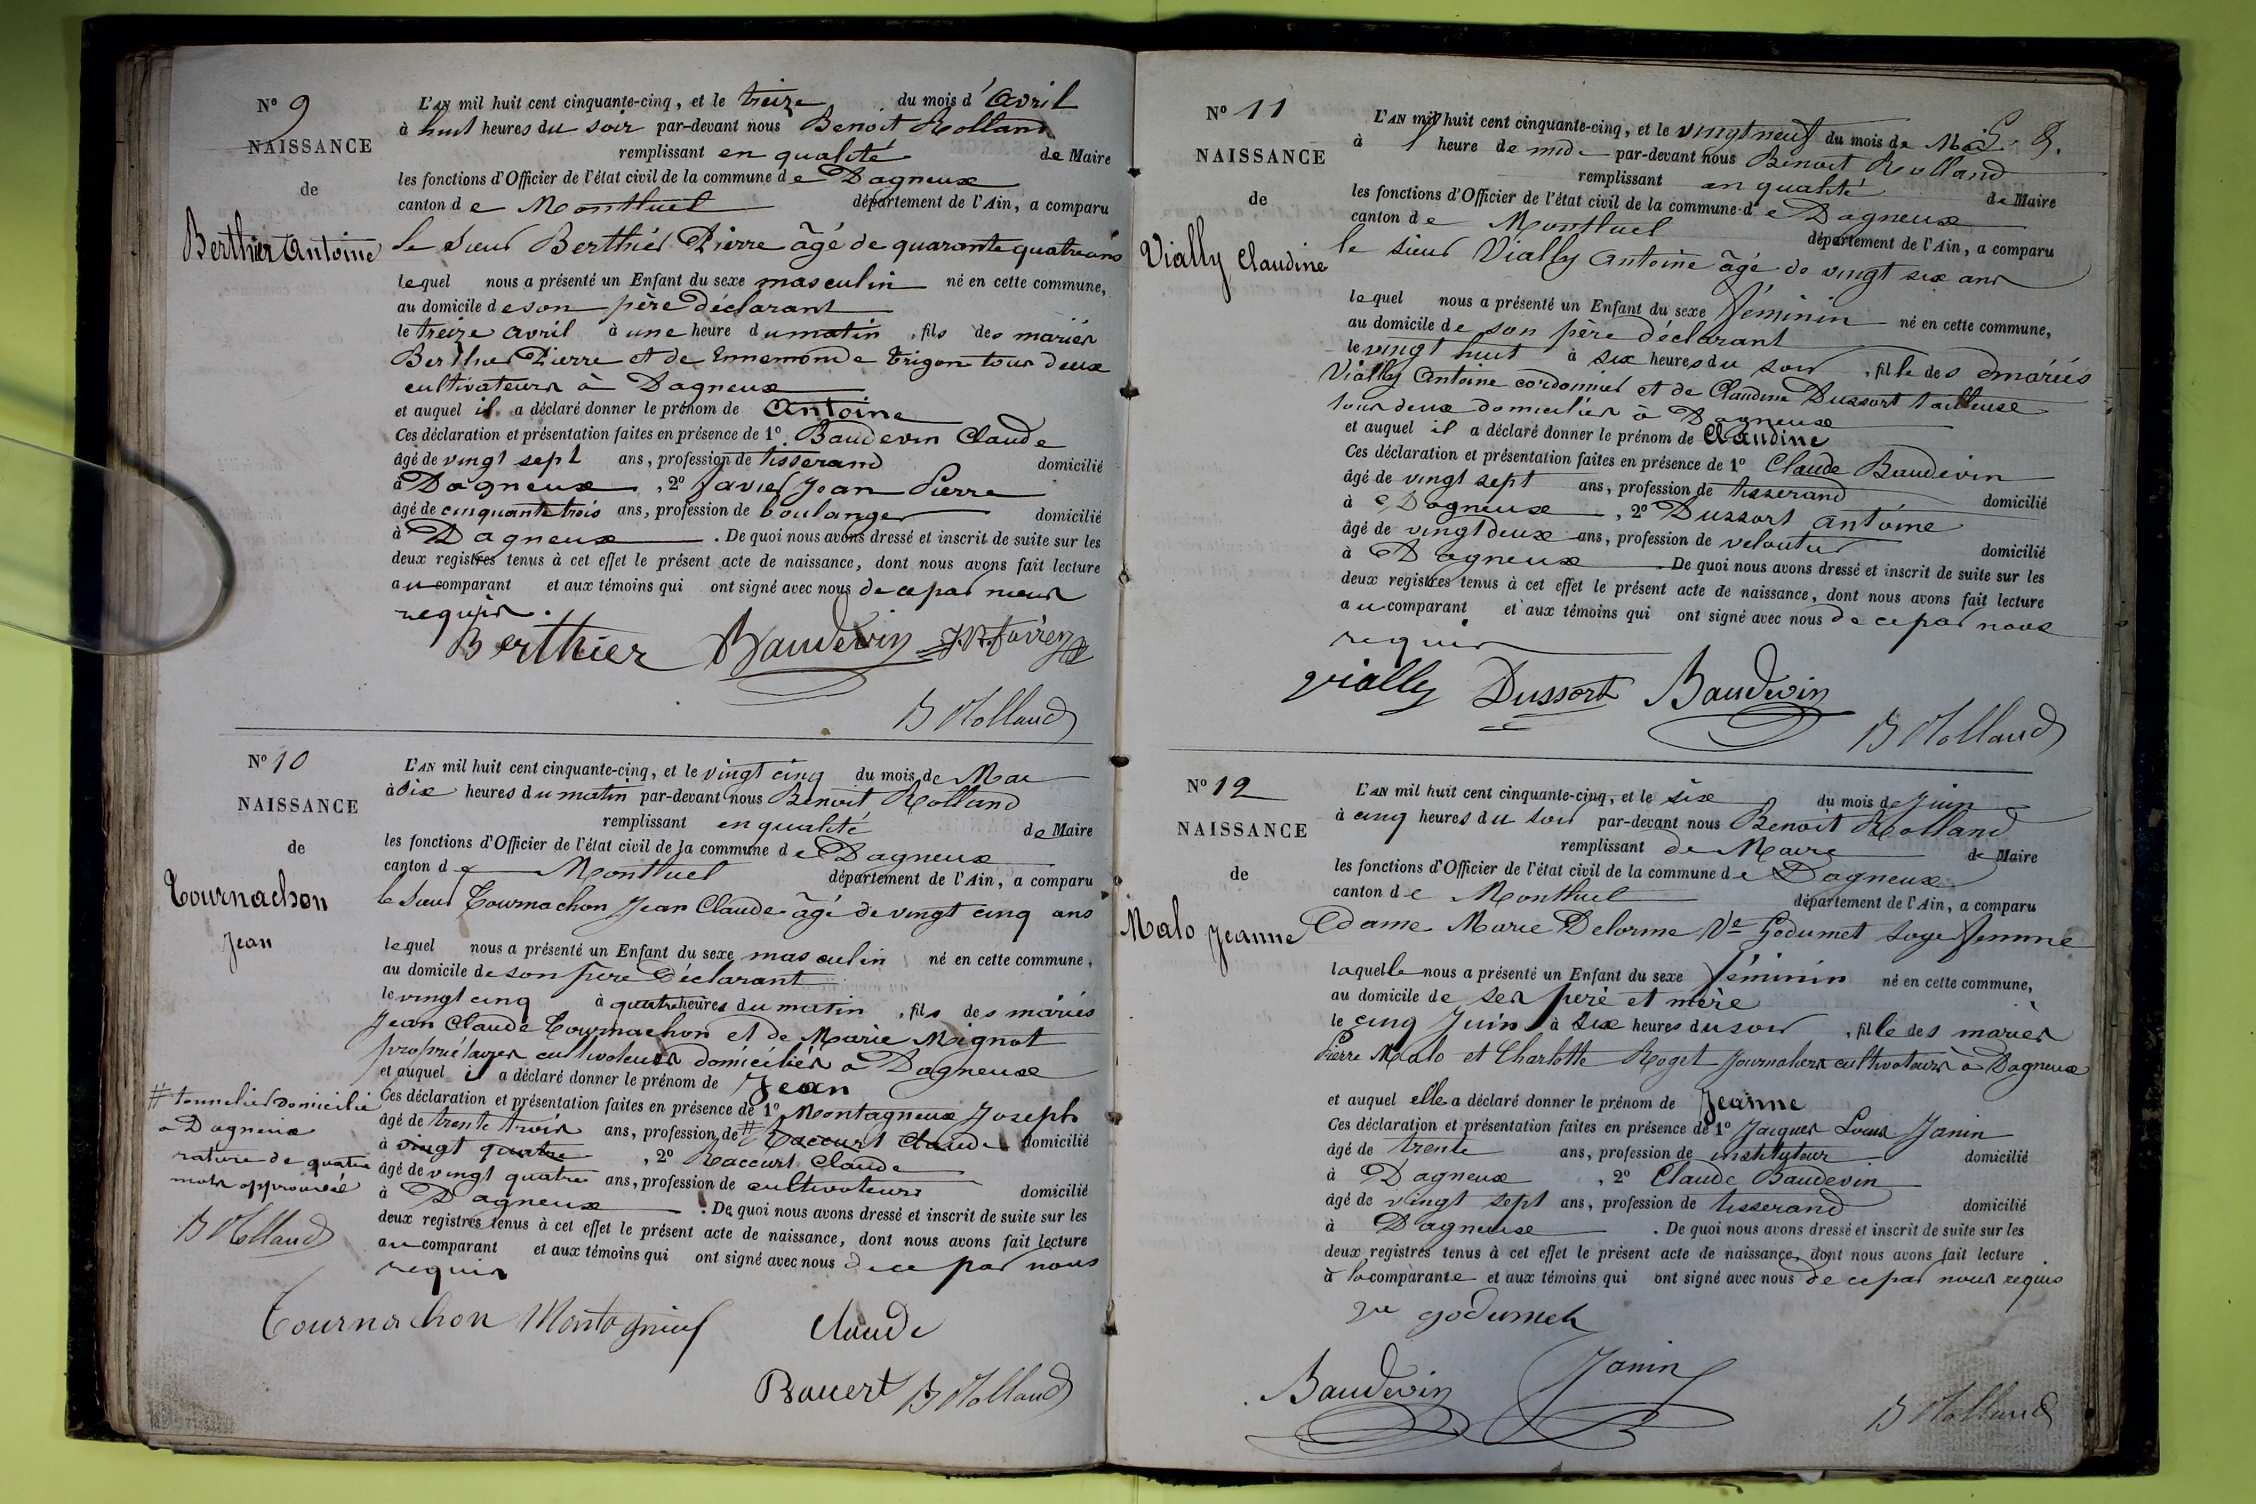 N° 9
NAISSANCE
de
Berthier Antoine
L'AN mil huit cent cinquante-cinq, et le treize du mois d'Avril
à huit heures du soir par-devant nous Benoit Rolland
remplissant en qualité de Maire
les fonctions d'Officier de l'état civil de la commune de Dagneux
canton de Montluel département de l'Ain, a comparu
le sieur Berthier Pierre âgé de quarante quatre ans
lequel nous a présenté un Enfant du sexe masculin né en cette commune,
au domicile de son père déclarant
le treize avril à une heure du matin, fils des mariés
Berthier Pierre et de Ennemonde Trigon tous deux
cultivateurs à Dagneux
et auquel il a déclaré donner le prénom de Antoine
Ces déclaration et présentation faites en présence de 1° Baudevin Claude
âgé de vingt sept ans, profession de tisserand domicilié
à Dagneux, 2° Favier Jean Pierre
âgé de cinquante trois ans, profession de boulanger domicilié
à Dagneux. De quoi nous avons dressé et inscrit de suite sur les
deux registres tenus à cet effet le présent acte de naissance, dont nous avons fait lecture
au comparant et aux témoins qui ont signé avec nous de ce par nous
requis.
Berthier Baudevin
B Rolland
N° 10
NAISSANCE
de
Tournachon
Jean
L'AN mil huit cent cinquante-cinq, et le vingt cinq du mois de Mai
à six heures du matin par-devant nous Benoit Rolland
remplissant en qualité de Maire
les fonctions d'Officier de l'état civil de la commune de Dagneux
canton de Montluel département de l'Ain, a comparu
le sieur Tournachon Jean Claude âgé de vingt cinq ans
lequel nous a présenté un Enfant du sexe masculin né en cette commune,
au domicile de son père Déclarant
le vingt cinq à quatre heures du matin, fils des mariés
Jean Claude Tournachon et de Marie Mignot
propriétaires cultivateurs domiciliés à Dagneux
et auquel il a déclaré donner le prénom de Jean
Ces déclaration et présentation faites en présence de 1° Montagneux Joseph
âgé de trente trois ans, profession de # Raccurt Claude domicilié
à vingt quatre, 2° Raccurt Claude
âgé de vingt quatre ans, profession de cultivateurs domicilié
à Dagneux. De quoi nous avons dressé et inscrit de suite sur les
deux registres tenus à cet effet le présent acte de naissance, dont nous avons fait lecture
au comparant et aux témoins qui ont signé avec nous de ce par nous
requis
# tonnelier domicilié
à Dagneux
rature de quatre
mots approuvée
B Rolland
Tournachon Montagnieux Claude
B Rolland
N° 11
NAISSANCE
de
Vially Claudine
L'AN mil huit cent cinquante-cinq, et le vingt neuf du mois de Mai
à 1 heure de midi par-devant nous Benoit Rolland
remplissant en qualité de Maire
les fonctions d'Officier de l'état civil de la commune de Dagneux
canton de Montluel département de l'Ain, a comparu
le sieur Vially Antoine âgé de vingt six ans
lequel nous a présenté un Enfant du sexe féminin né en cette commune,
au domicile de son père déclarant
le vingt huit à six heures du soir, fille des mariés
Vially Antoine cordonnier et de Claudine Dussort tailleuse
tous deux domiciliés à Dagneux
et auquel il a déclaré donner le prénom de Claudine
Ces déclaration et présentation faites en présence de 1° Claude Baudevin
âgé de vingt sept ans, profession de tisserand domicilié
à Dagneux, 2° Dussort Antoine
âgé de vingt deux ans, profession de veloutier domicilié
à Dagneux. De quoi nous avons dressé et inscrit de suite sur les
deux registres tenus à cet effet le présent acte de naissance, dont nous avons fait lecture
au comparant et aux témoins qui ont signé avec nous de ce par nous
requis
Vially Dussort Baudevin
B Rolland
N° 12
NAISSANCE
de
Malo Jeanne
L'AN mil huit cent cinquante-cinq, et le six du mois de Juin
à cinq heures du soir par-devant nous Benoit Rolland
remplissant de Maire de Maire
les fonctions d'Officier de l'état civil de la commune de Dagneux
canton de Montluel département de l'Ain, a comparu
Dame Marie Delorme Ve Godumet sage femme
laquelle nous a présenté un Enfant du sexe féminin né en cette commune,
au domicile de ses père et mère
le cinq Juin à six heures du soir, fille des mariés
Pierre Malo et Charlotte Roget journaliers cultivateurs à Dagneux
et auquel elle a déclaré donner le prénom de Jeanne
Ces déclaration et présentation faites en présence de 1° Jacques Louis Janin
âgé de trente ans, profession de instituteur domicilié
à Dagneux, 2° Claude Baudevin
âgé de vingt sept ans, profession de tisserand domicilié
à Dagneux. De quoi nous avons dressé et inscrit de suite sur les
deux registres tenus à cet effet le présent acte de naissance, dont nous avons fait lecture
à la comparante et aux témoins qui ont signé avec nous de ce par nous requis
ve godumet
Baudevin Janin
B Rolland